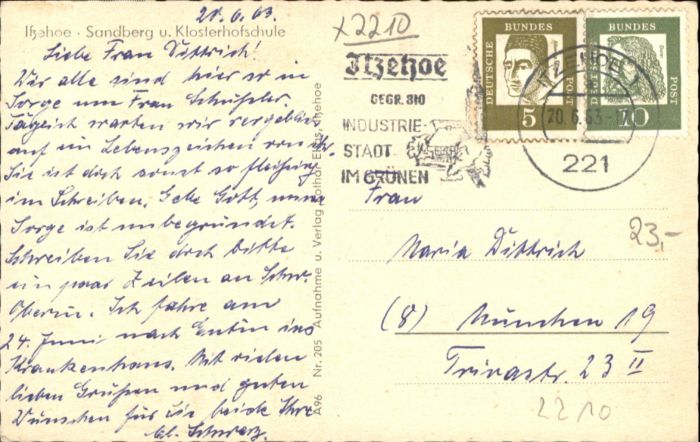 Itzehoe · Sandberg u. Klosterhofschule
20.6.63.
Liebe Frau Dittrich!
Wir alle sind hier so in
Sorge um Frau Schüssler.
Täglich warten wir vergeblich
auf ein Lebenszeichen von ihr.
Sie ist doch sonst so fleißig
im Schreiben. Gebe Gott, unsere
Sorge ist unbegründet.
Schreiben Sie doch bitte
ein paar Zeilen an Schw.
Oberin. Ich fahre am
24. Juni nach Eutin ins
Krankenhaus. Mit vielen
lieben Grüßen und guten
Wünschen für Sie beide Ihre
Schwarz.
A96 Nr. 205 Aufnahme u. Verlag Itzehoe
x2210
Itzehoe
GEGR. 810
INDUSTRIE-
STADT
IM GRÜNEN
DEUTSCHE BUNDES POST
5
DEUTSCHE BUNDES POST
10
ITZEHOE 1
20.6.63-17
221
Frau
Maria Dittrich
(8) München 19
Trivastr. 23 II
23,-
2210